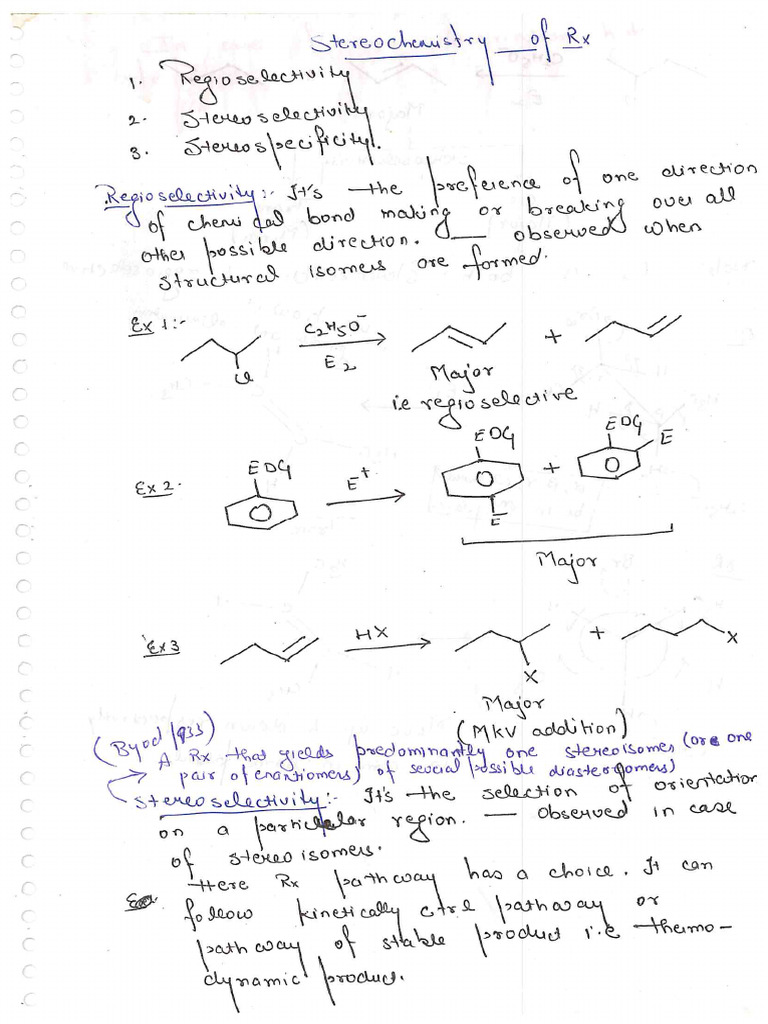 Stereochemistry of Rx
1. Regioselectivity
2. Stereoselectivity
3. Stereospecificity.
Regioselectivity:- It's the preference of one direction
of chemical bond making or breaking over all
other possible direction. — observed when
structural isomers are formed.
Ex 1:-
C2H5O−
E2
+
Cl
Major
i.e regioselective
Ex 2.
EDG
E+
EDG
E
+
EDG
E
Major
Ex 3
HX
X
+
X
Major
(MKV addition)
(Byod 1933)
A Rx that yields predominantly one stereoisomer (or one
pair of enantiomers) of several possible diastereomers)
Stereoselectivity:- It's the selection of orientation
on a particular region. — observed in case
of stereoisomers.
Here Rx pathway has a choice. It can
follow kinetically ctrl pathway or
pathway of stable product i.e thermo-
dynamic product.